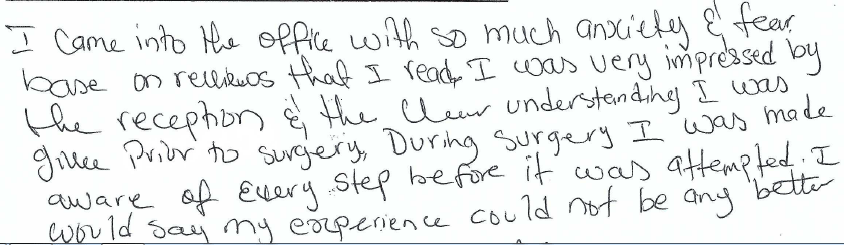 I Came into the office with so much anxiety & fear
base on reviews that I read. I was very impressed by
the reception & the Clear understanding I was
given Prior to surgery, During surgery I was made
aware of Every step before it was attempted. I
would say my experience could not be any better